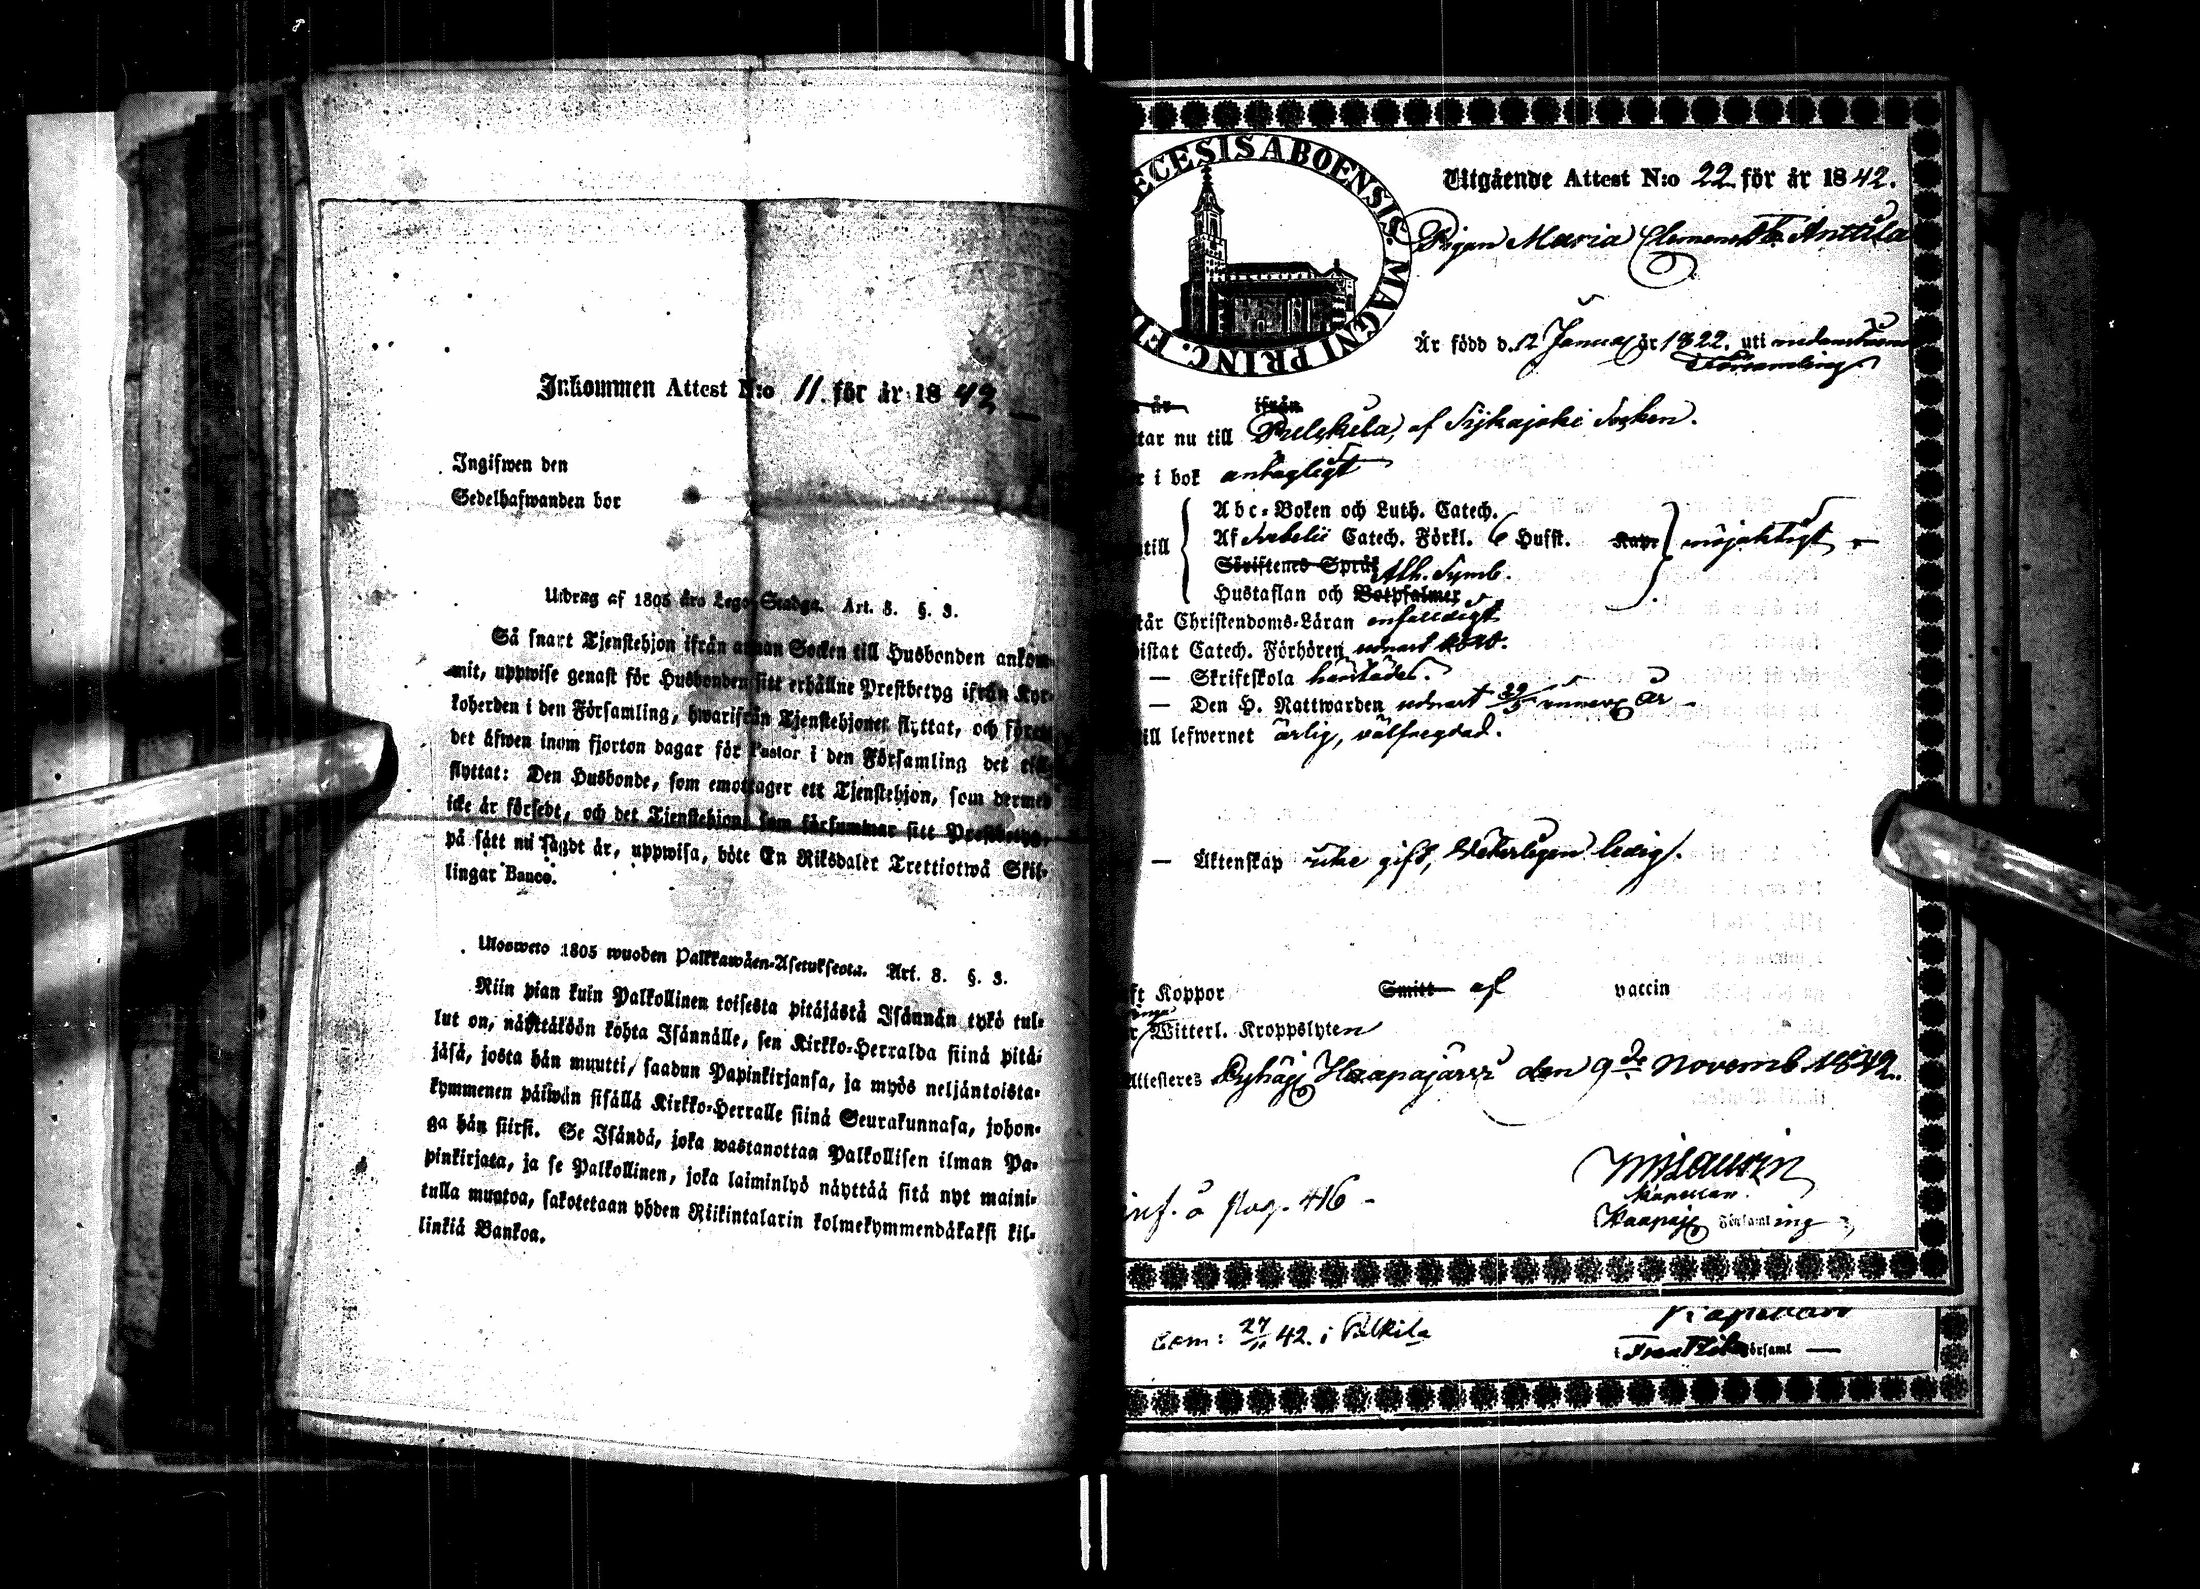 Inkommen Attest N:o 11. för år 1842
Ingifwen den
Sedelhafwanden bor
Utdrag af 1805 års Lego-Stadga. Art. 8. §. 3.
Så snart Tjenstehjon ifrån annan Socken till Husbonden ankom-
mit, uppwise genast för Husbonden sitt erhållne Prestbetyg ifrån Kyr-
koherden i den Församling, hwarifrån Tjenstehjonet flyttat, och förete
det äfwen inom fjorton dagar för Pastor i den Församling det till-
flyttat: Den Husbonde, som emottager ett Tjenstehjon, som dermed
icke är försedt, och det Tjenstehjon, som försummar sitt Prestbetyg,
på sätt nu sagdt är, uppwisa, böte En Riksdaler Trettiotwå Skil-
lingar Banco.
Ulosweto 1805 wuoden Palkkawäen-Asetuksesta. Art. 8. §. 3.
Niin pian kuin Palkollinen toisesta pitäjästä Isännän tykö tul-
lut on, näyttäköön kohta Isännälle, sen Kirkko-Herralda siinä pitä-
jäsä, josta hän muutti, saadun Papinkirjansa, ja myös neljäntoista-
kymmenen päiwän sisällä Kirkko-Herralle siinä Seurakunnasa, johon-
ga hän siirsi. Se Isändä, joka wastanottaa Palkollisen ilman Pa-
pinkirjata, ja se Palkollinen, joka laiminlyö näyttää sitä nyt maini-
tulla muotoa, sakotetaan yhden Riikintalarin kolmekymmendäkaksi kil-
linkiä Bankoa.
ECESIS ABOENSIS. MAGNI PRINC. FI
Utgående Attest N:o 22 för år 1842.
Pigan Maria Clemens Anttila
Är född d. 12 Januar år 1822. uti nedanskrefne
Församling
år ifrån
tar nu till Pulkkila, af Sijkajoki Socken.
r i bok antagligt
Abc-Boken och Luth. Catech.
till Af Svebelii Catech. Förkl. Husft. nöjaktigt
Skriftens Språk Ath. Symb.
Hustaflan och Botpsalmer
tår Christendoms-Läran enfaldigt
istat Catech. Förhören senast 1840.
— Skriftskola
— Den H. Nattwarden senast år
ill lefwernet ärlig, välfrägdad.
— Äktenskap icke gift, Veterligen ledig.
ft Koppor Smitt af vaccin
r Witterl. Kroppslyten
Attesteres Pyhäj Haapajärvi den 9de Novemb. 1842.
Kapellan.
inf. å pag. 416 — Haapajj Församling
Kapellan
Com: 27/11 42. i Pulkila
Frantsila Församl —